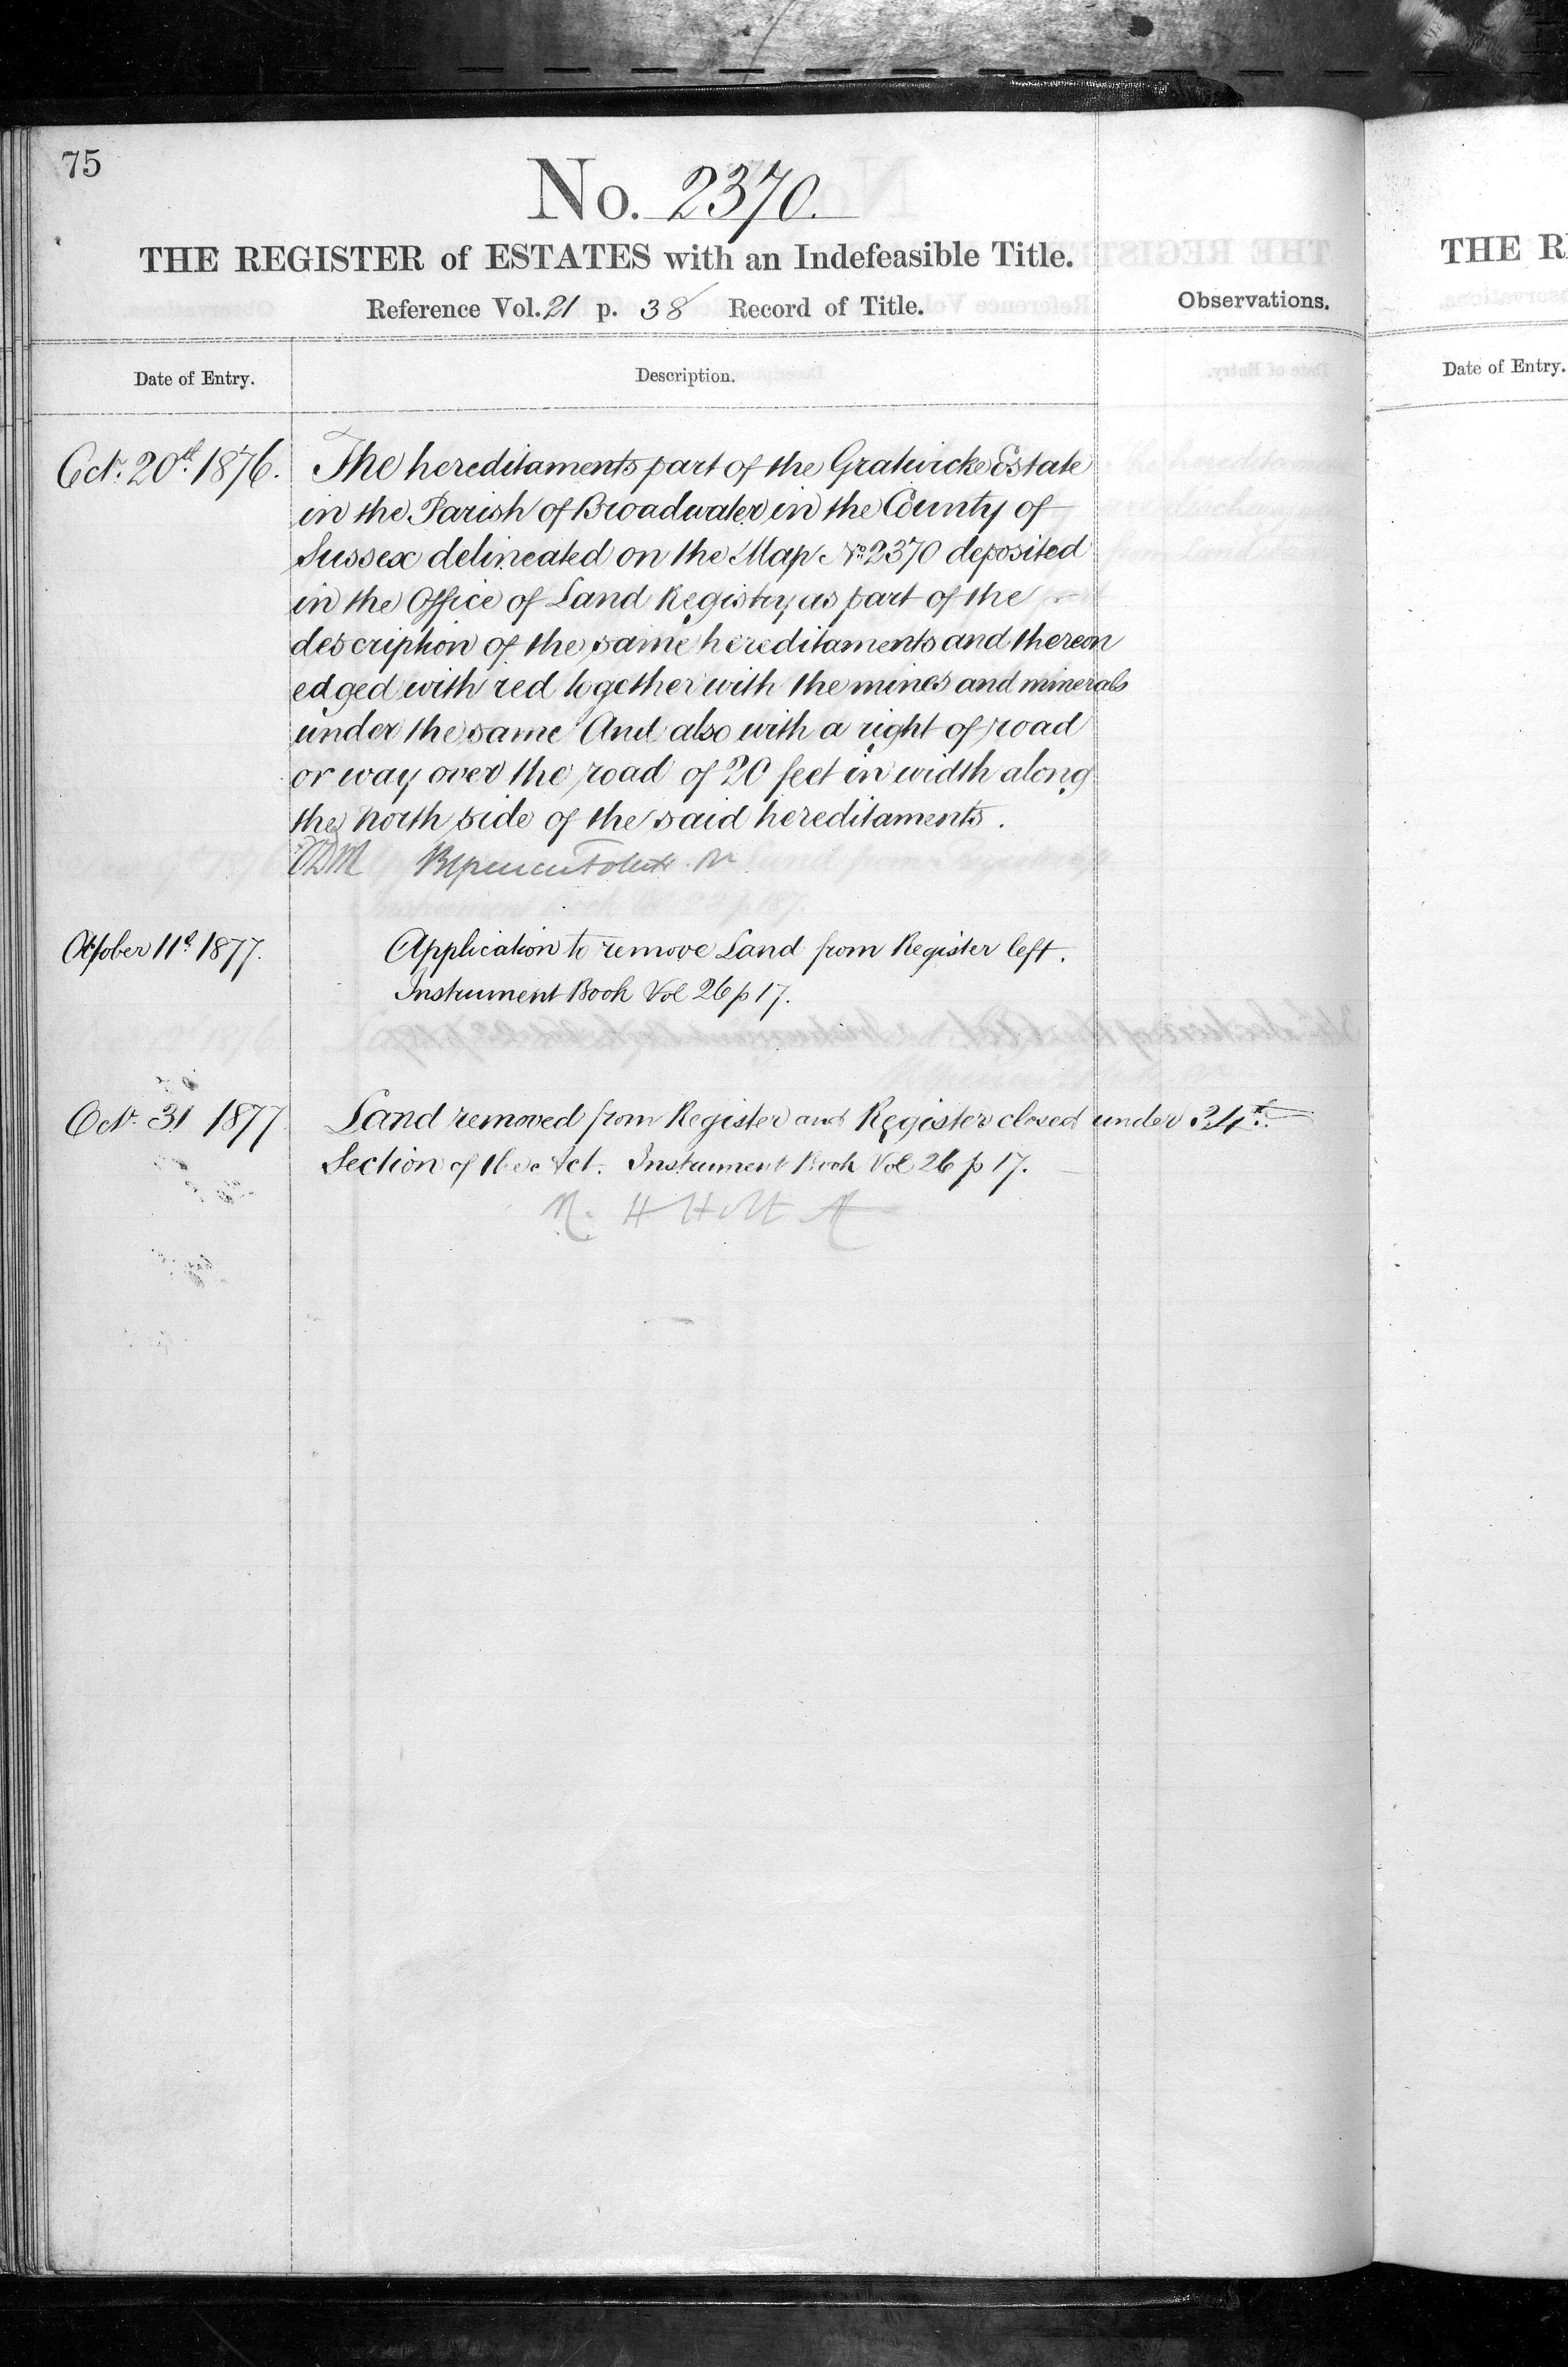 75
No. 2370.
THE REGISTER of ESTATES with an Indefeasible Title.
Reference Vol. 21 p. 38 Record of Title.
Observations.
Date of Entry.
Description.
Octr. 20th. 1876.
The hereditaments part of the Gratwicke Estate
in the Parish of Broadwater in the County of
Sussex delineated on the Map No. 2370 deposited
in the Office of Land Registry as part of the
description of the same hereditaments and thereon
edged with red together with the mines and minerals
under the same And also with a right of road
or way over the road of 20 feet in width along
the north side of the said hereditaments.
October 11th 1877.
Application to remove Land from Register left.
Instrument Book Vol 26 p 17.
Octr. 31 1877
Land removed from Register and Register closed under 34th.
Section of the Act. Instrument Book Vol 26 p 17.
THE R
Date of Entry.